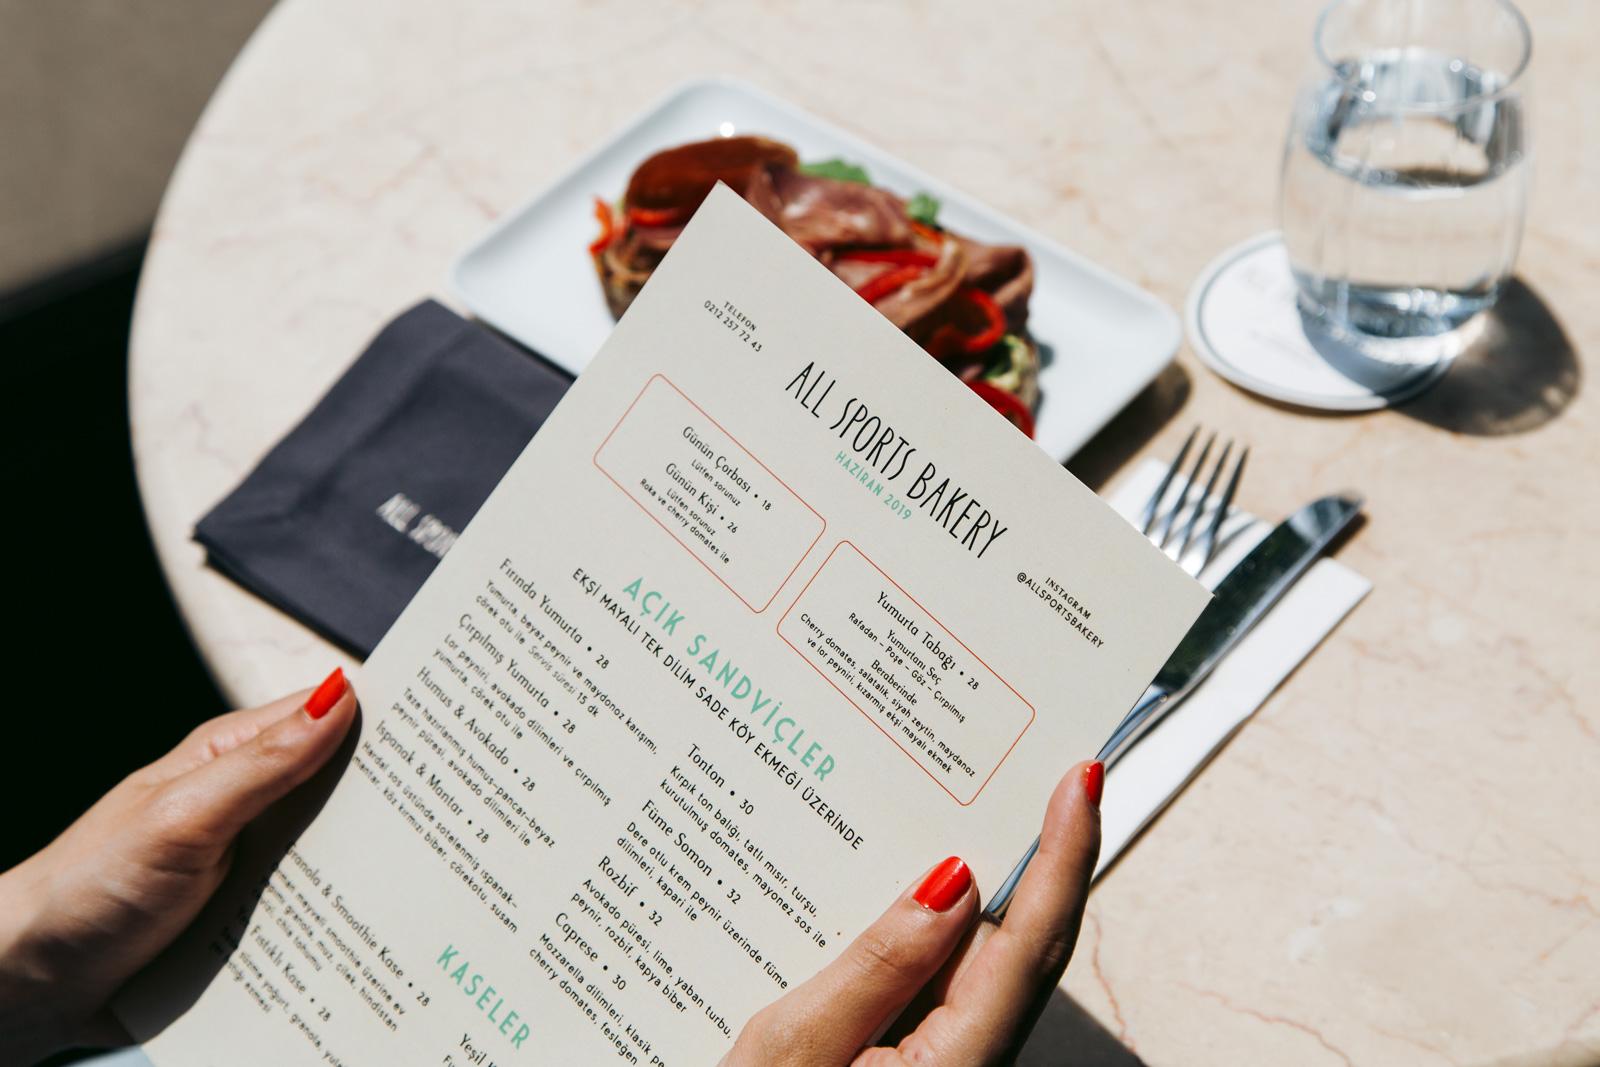 TELEFON
0212 257 72 43
ALL SPORTS BAKERY
HAZİRAN 2019
INSTAGRAM
@ALLSPORTSBAKERY
Günün Çorbası • 18
Lütfen sorunuz
Günün Kişi • 26
Lütfen sorunuz
Roka ve cherry domates ile
Yumurta Tabağı • 28
Yumurtanı Seç
Rafadan – Poşe – Göz – Çırpılmış
Beraberinde
Cherry domates, salatalık, siyah zeytin, maydanoz
ve lor peyniri, kızarmış ekşi mayalı ekmek
AÇIK SANDVİÇLER
EKŞİ MAYALI TEK DİLİM SADE KÖY EKMEĞİ ÜZERİNDE
Fırında Yumurta • 28
Yumurta, beyaz peynir ve maydonoz karışımı,
çörek otu ile Servis süresi 15 dk
Çırpılmış Yumurta • 28
Lor peyniri, avokado dilimleri ve çırpılmış
yumurta, çörek otu ile
Humus & Avokado • 28
Taze hazırlanmış humus–pancar–beyaz
peynir püresi, avokado dilimleri ile
Ispanak & Mantar • 28
Hardal sos üstünde sotelenmiş ispanak–
mantar, köz kırmızı biber, çörekotu, susam
Tonton • 30
Kırpık ton balığı, tatlı mısır, turşu,
kurutulmuş domates, mayonez sos ile
Füme Somon • 32
Dere otlu krem peynir üzerinde füme
dilimleri, kapari ile
Rozbif • 32
Avokado püresi, lime, yaban turbu,
peynir, rozbif, kapya biber
Caprese • 30
Mozzarella dilimleri, klasik pe
cherry domates, fesleğen
KASELER
Granola & Smoothie Kase • 28
mayveli smoothie üzerine ev
granola, muz, çilek, hindistan
chia tohumu
Fıstıklı Kase • 28
süzme yoğurt, granola, yula
ezmesi
Yeşil
ALL SPOR